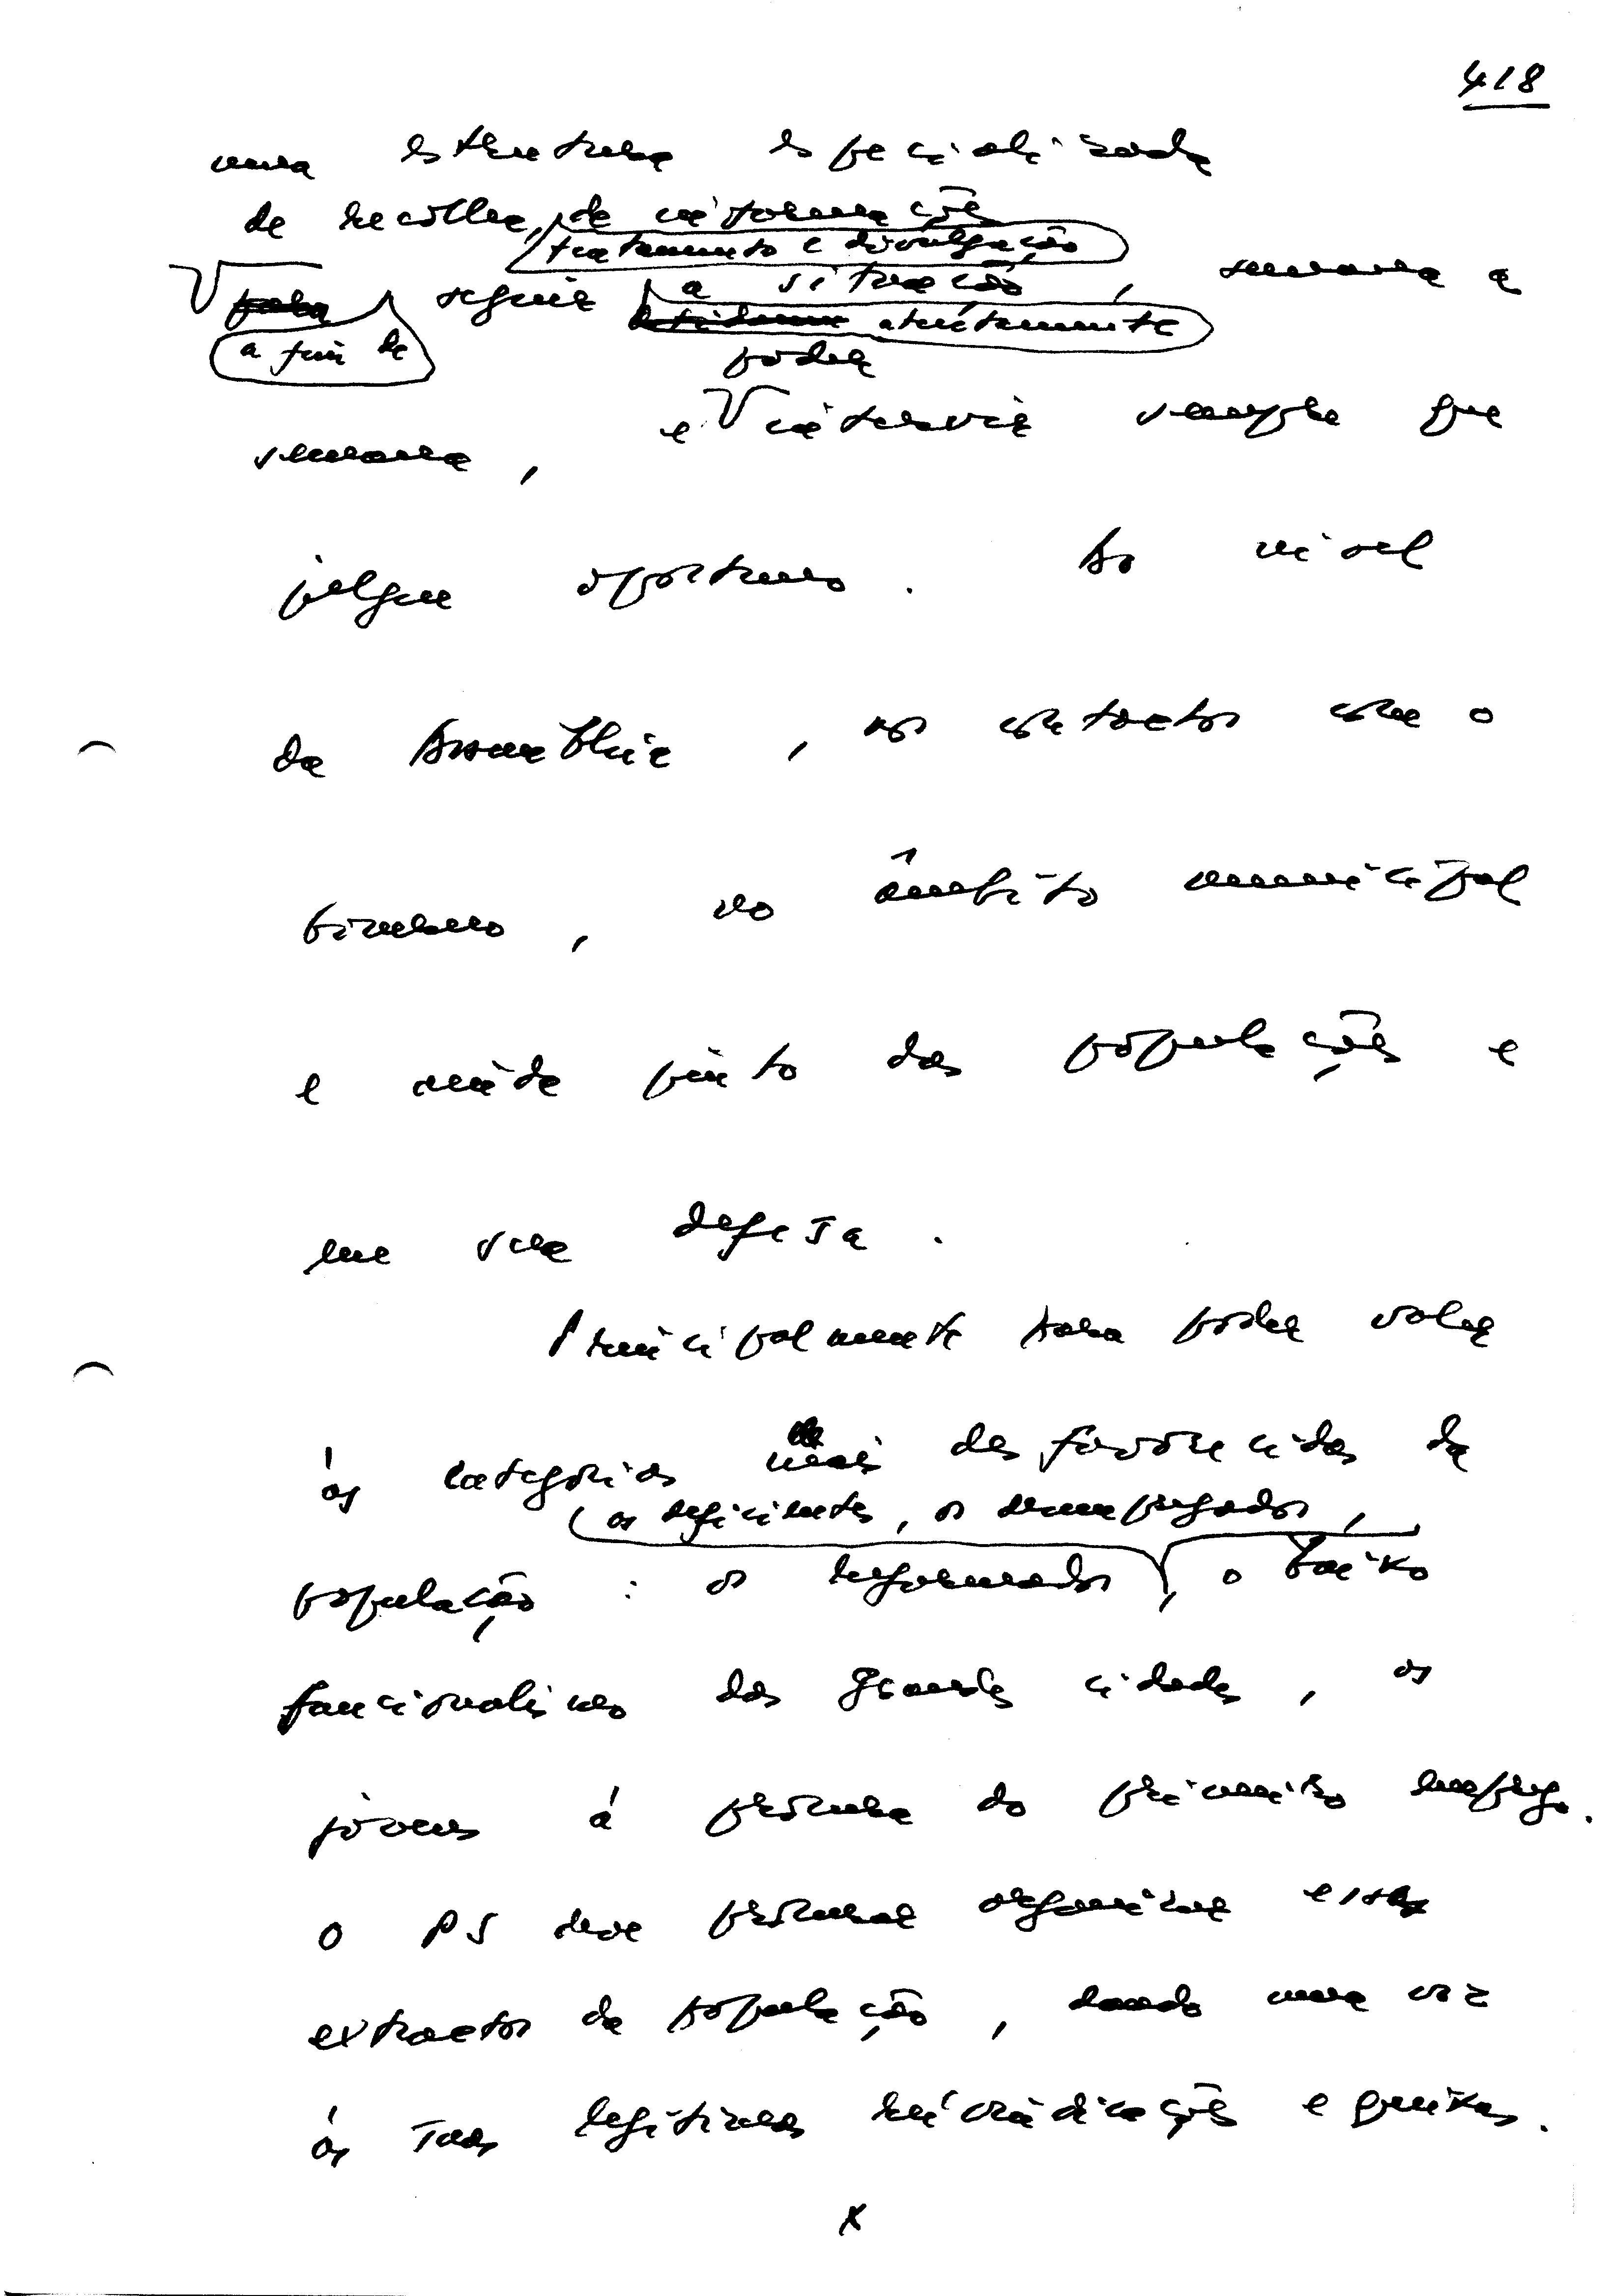 418
uma estrutura especializada
de recolha, de informações
tratamento e divulgação
para seguir a situação, semana a
a fim de atentamente
poder
semana, e intervir sempre que
julgue oportuno. Ao nível
da Assembleia, nos contactos com o
Governo, no âmbito municipal
e ainda junto das populações e
em sua defesa.
Principalmente para poder valer
às categorias mais desfavorecidas da
os deficientes, os desempregados,
população: os reformados, o baixo
funcionalismo das grandes cidades, os
jovens à procura do primeiro emprego.
O PS deve procurar organizar esses
extractos da população, dando uma voz
às suas legítimas reivindicações e queixas.
x